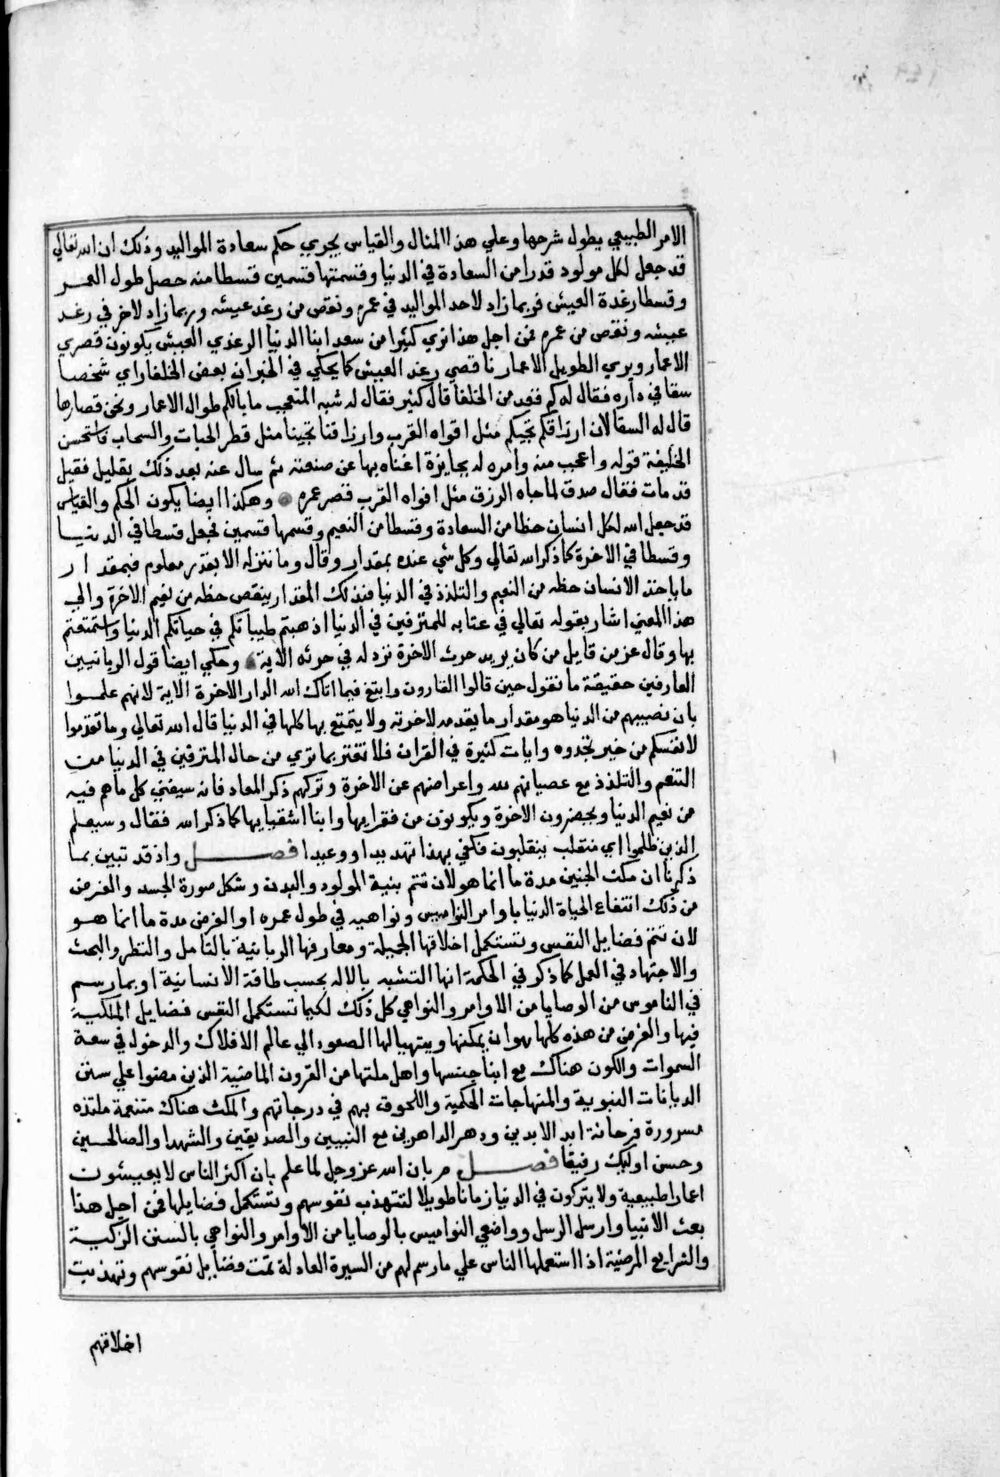 الامر الطبيعي يطول شرحها وعلي هذا المثال والقياس يجري حكم سعادة المواليد وذلك ان الله تعالي
قد جعل لكل مولود قدرا من السعادة في الدنيا وقسمتها قسمين قسطا منه حصل طول العمر
وقسطا رغدة العيش فربما زاد لاحد المواليد في عمره ونقص من رغد عيشه وربما زاد لاخر في رغد
عيشه ونقص من عمره فمن اجل هذا نري كثيرا من سعد ابنا الدنيا الرغدي العيش يكونون قصري
الاعمار ويري الطويل الاعمار ناقصي رغد العيش كما يحكي في الخبر ان بعض الخلفا راي شخصا
سقا في داره فقال له كم فقد من الخلفا قال كثير فقال له شبه المتعجب ما بالكم طوال الاعمار ونحن قصارها
قال له السقا لان ارزاقكم تجيكم مثل افواه القرب وارزاقنا تجينا مثل قطر الحبات والسحاب فاستحسن
الخليفة قوله واعجب منه وامره له بجايزة اغناه بها عن صنعته ثم سال عنه بعد ذلك بقليل فقيل
قد مات فقال صدق لما جاه الرزق مثل افواه القرب قصر عمره وهكذا ايضا يكون الحكم والقياس
قد جعل الله لكل انسان حظا من السعادة وقسطا من النعيم وقسمها قسمين فجعل قسطا في الدنيا
وقسطا في الاخرة كما ذكر الله تعالي وكل شي عنده بمقدار وقال وما ننزله الا بقدر معلوم فبمقدار
ما ياخذ الانسان حظه من النعيم والتلذذ في الدنيا فذلك المقدار ينقص حظه من نعيم الاخرة والي
هذا المعني اشار بقوله تعالي في عتابه للمترفين في الدنيا اذهبتم طيباتكم في حياتكم الدنيا واستمتعتم
بها وقال عز من قايل من كان يريد حرث الاخرة نزد له في حرثه الاية وحكي ايضا قول الربانيين
العارفين حقيقة ما نقول حين قالوا القارون وابتغ فيما اتاك الله الدار الاخرة الاية لانهم علموا
بان نصيبهم من الدنيا هو مقدار ما يقدمه لاخرته ولا يتمتع بها كلها في الدنيا قال الله تعالي وما تقدموا
لانفسكم من خير تجدوه وايات كثيرة في القران فلا تغتر بما تري من حال المترفين في الدنيا من
التنعم والتلذذ مع عصيانهم لله واعراضهم عن الاخرة وتركهم ذكر المعاد فانه سيفني كل ما هم فيه
من نعيم الدنيا ويحضرون الاخرة ويكونون من فقرايها وابنا اشقيايها كما ذكر الله فقال وسيعلم
الذين ظلموا اي منقلب ينقلبون فكفي بهذا تهديدا ووعيدا فصل واذ قد تبين بما
ذكرنا ان مكث الجنين مدة ما انما هو لان تتم بنية المولود والبدن وشكل صورة الجسد والغرض
من ذلك انتفاع الحياة الدنيا باوامر النواميس ونواهيه في طول عمره او الغرض مدة ما انما هو
لان تتم فضايل النفس وتستكمل اخلاقها الجميلة ومعارفها الربانية بالتامل والنظر والبحث
والاجتهاد في العمل كما ذكر في الحكمة انها التشبه بالاله بحسب طاقة الانسانية او بما رسم
في الناموس من الوصايا من الاوامر والنواهي كل ذلك لكيما تستكمل النفس فضايل الملكية
فيها والغرض من هذه كلها هو ان يمكنها ويتهيا لها الصعود الي عالم الافلاك والدخول في سعة
السموات والكون هناك مع ابنا جنسها واهل ملتها من القرون الماضية الذين مضوا علي سنن
الديانات النبوية والمنهاجات الحكمية واللحوق بهم في درجاتهم والمكث هناك متنعمة ملتذه
مسرورة فرحانة ابد الابدين ودهر الداهرين مع النبيين والصديقين والشهدا والصالحين
وحسن اوليك رفيقا فصل مر بان الله عز وجل لما علم بان اكثر الناس لا يعيشون
اعمارا طبيعية ولا يتركون في الدنيا زمانا طويلا لتتهذب نفوسهم وتستكمل فضايلها فمن اجل هذا
بعث الانبيا وارسل الرسل وواضعي النواميس بالوصايا من الاوامر والنواهي بالسنن الزكية
والشرايع المرضية اذا استعملها الناس علي ما رسم لهم من السيرة العادلة تمت فضايل نفوسهم وتهذبت
اخلاقهم